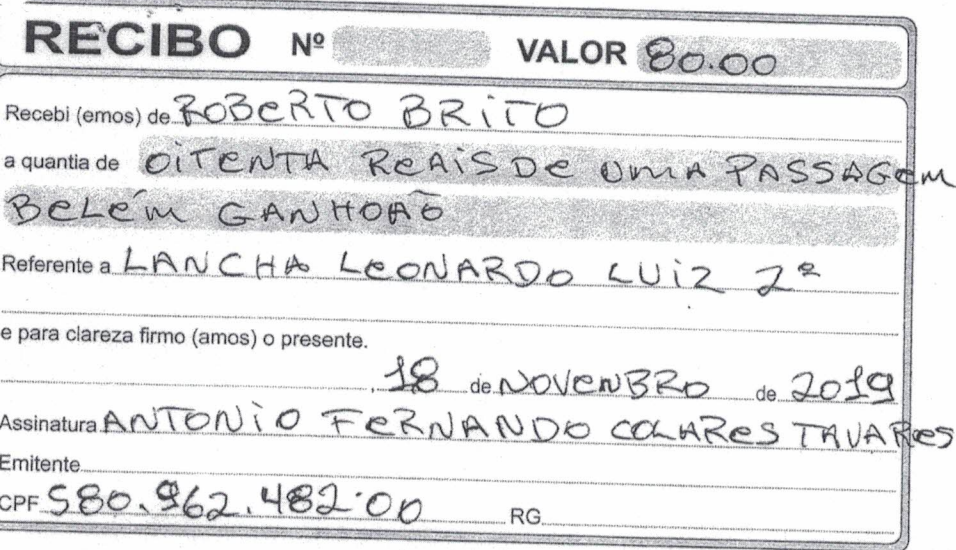 RECIBO Nº VALOR 80.00
Recebi (emos) de ROBERTO BRITO
a quantia de OITENTA REAIS DE UMA PASSAGEM
BELÉM GANHOÃO
Referente a LANCHA LEONARDO LUIZ 2º
e para clareza firmo (amos) o presente.
, 18 de NOVENBRO de 2019
Assinatura ANTONIO FERNANDO COLARES TAVARES
Emitente
CPF 580.962.482.00 RG